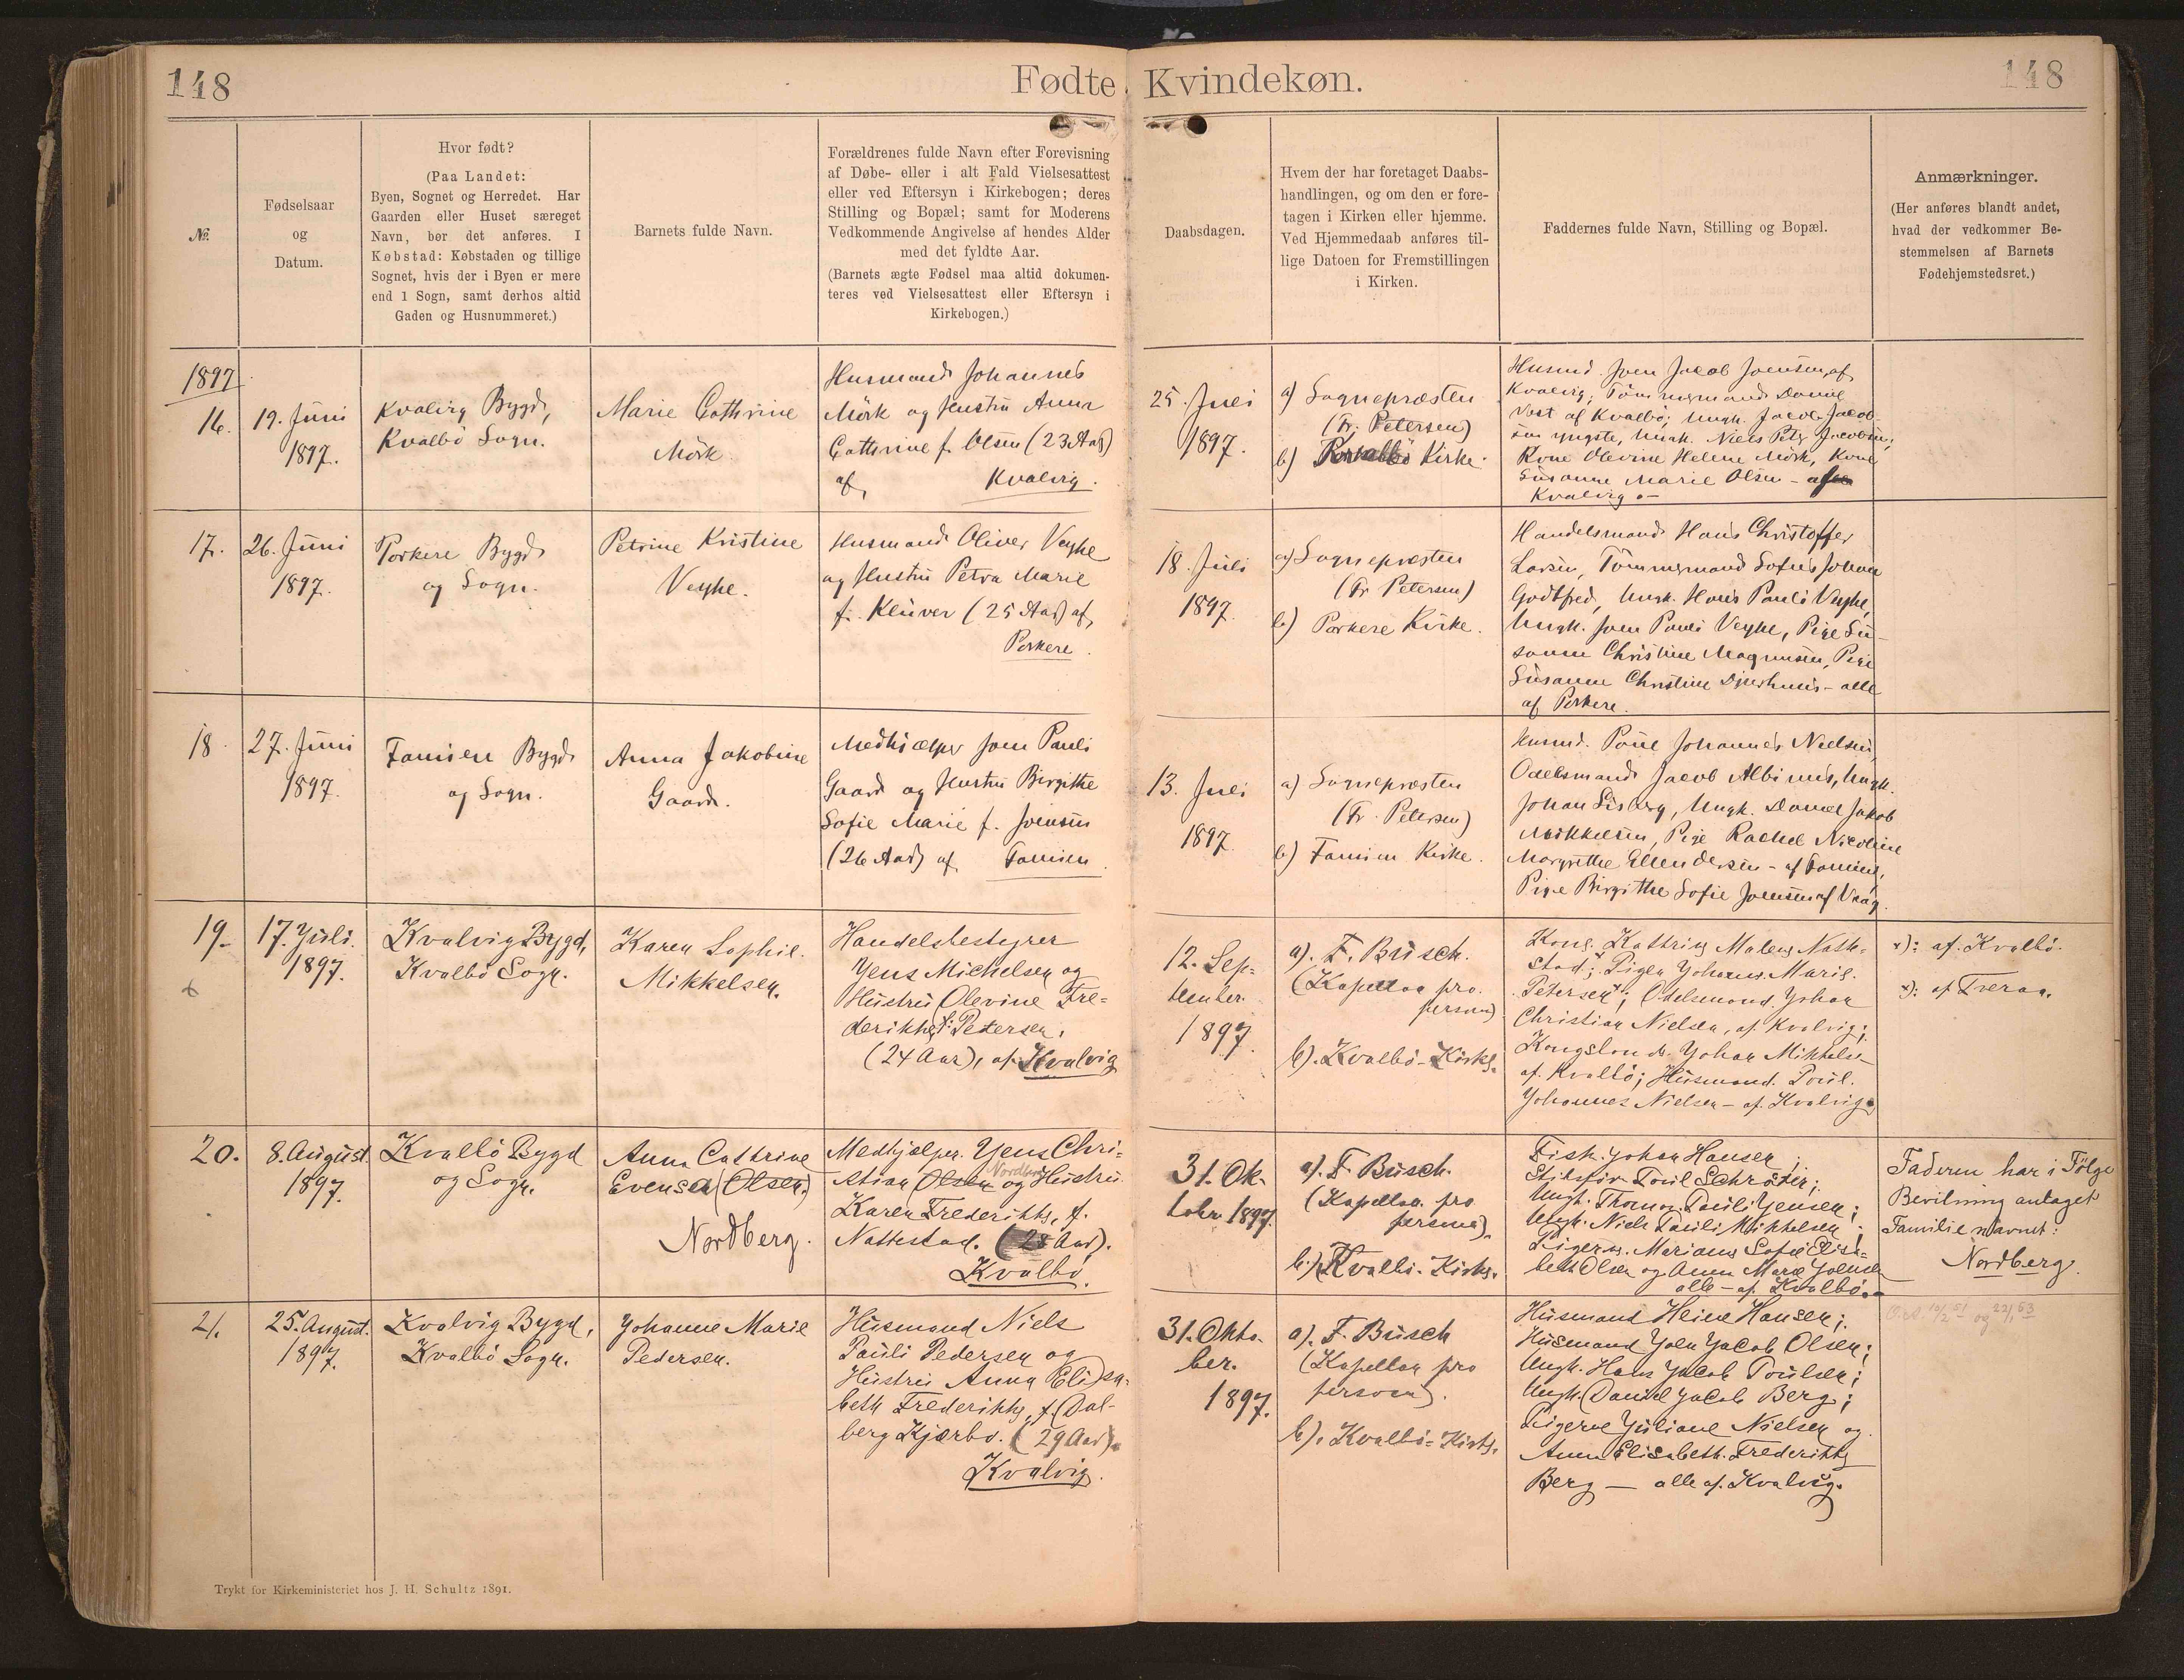 148
Fødte
Kvindekøn.
148
№.
Fødselsaar
og
Datum.
Hvor født?
(Paa Landet:
Byen, Sognet og Herredet. Har
Gaarden eller Huset særeget
Navn, bør det anføres. I
Købstad: Købstaden og tillige
Sognet, hvis der i Byen er mere
end 1 Sogn, samt derhos altid
Gaden og Husnummeret.)
Barnets fulde Navn.
Forældrenes fulde Navn efter Forevisning
af Døbe- eller i alt Fald Vielsesattest
eller ved Eftersyn i Kirkebogen; deres
Stilling og Bopæl; samt for Moderens
Vedkommende Angivelse af hendes Alder
med det fyldte Aar.
(Barnets ægte Fødsel maa altid dokumen-
teres ved Vielsesattest eller Eftersyn i
Kirkebogen.)
Daabsdagen.
Hvem der har foretaget Daabs-
handlingen, og om den er fore-
tagen i Kirken eller hjemme.
Ved Hjemmedaab anføres til-
lige Datoen for Fremstillingen
i Kirken.
Faddernes fulde Navn, Stilling og Bopæl.
Anmærkninger.
(Her anføres blandt andet,
hvad der vedkommer Be-
stemmelsen af Barnets
Fødehjemstedsret.)
1897
16.
19. Juni
1897.
Kvalvig Bygd,
Kvalbø Sogn.
Marie Cathrine
Mörk
Husmand Johannes
Mörk og Hustru Anna
Cathrine f. Olsen (23 Aar)
af
Kvalvig.
25. Juli
1897.
a) Sognepræsten
(Fr. Petersen)
b) Kvalbö Kirke.
Husmd. Joen Jacob Joensen, af
Kvalvig; Tömmermand Daniel
Vest af Kvalbö; Ungk. Jacob Jacob-
sen yngste, Ungk. Niels Petr Jacobsen,
Kone Olevine Helene Mörk, Kone
Susanne Marie Olsen - af
Kvalvig.-
17.
26. Juni
1897.
Porkere Bygd
og Sogn.
Petrine Kristine
Veyhe.
Husmand Oliver Veyhe
og Hustru Petra Marie
f. Klüver (25 Aar) af
Porkere.
18. Juli
1897.
a) Sognepræsten
(Fr. Petersen)
b) Porkere Kirke.
Handelsmand Hans Christoffer
Larsen, Tömmermand Sofus Johan
Godtfred, Ungk. Hans Pauli Veyhe,
Ungk. Joen Pauli Veyhe, Pige Su-
sanne Christine Magnussen, Pige
Susanne Christine Djurhuus - alle
af Porkere.
18.
27. Juni
1897.
Famien Bygd
og Sogn.
Anna Jakobine
Gaard.
Medhjælper Joen Pauli
Gaard og Hustru Birgithe
Sofie Marie f. Joensen
(26 Aar) af Famien.
13. Juli
1897.
a) Sognepræsten
(Fr. Petersen)
b) Famien Kirke.
Husmd. Poul Johannes Nielsen,
Odelsmand Jacob Albinus, Ungk.
Johan Lisberg, Ungk. Daniel Jakob
Mikkelsen, Pige Rachel Nicoline
Margrethe Ellendersen - af Famien,
Pige Birgithe Sofie Joensen af Vaag.
19.
17. Juli.
1897.
Kvalvig Bygd,
Kvalbø Sogn.
Karen Sophie.
Mikkelsen.
Handelsbestyrer
Jens Michelsen og
Hustru Olevine Fre-
derikke f. Petersen,
(24 Aar), af Kvalvig
12. Sep-
tember.
1897.
a). F. Busch.
(Kapellan pro.
persona)
b). Kvalbø-Kirke.
Kone. Kathrine Malene Natte-
stad; Pigen Johanne Marie.
Petersen; Odelsmand. Johan
Christian Nielsen, af. Kvalvig;
Kongsbonde. Johan Mikkelsen
af. Kvalbø; Husmand. Poul.
Johannes Nielsen - af. Kvalvig.
x): af. Kvalbø.
x): af Tveraa.
20.
8. August.
1897.
Kvalbø Bygd
og Sogn.
Anna Cathrine
Evensen (Olsen)
Nordberg.
Medhjælper. Jens Chri-
stian Olsen og Hustru
Nordberg
Karen Frederikke, f.
Nattestad. (28 Aar).
Kvalbø.
31. Ok-
tobr. 1897.
a). F. Busch.
(Kapellan. pro
persona).
b.) Kvalbø. Kirke.
Fisk. Johan Hansen;
Skibsför. Poul Schröter;
Ungk. Thomas Pauli Jensen;
Ungk. Niels Pauli Mikkelsen;
Pigerne. Mariane Sofie Elisa-
beth Olsen og Anna Marie Joensen
alle - af. Kvalbø.
Faderen har i Følge
Bevilning antaget
Familienavnet:
Nordberg.
21.
25. August.
1897.
Kvalvig Bygd,
Kvalbø Sogn.
Johanne Marie
Pedersen.
Husmand Niels
Pauli Pedersen og
Hustru Anna Elisa-
beth Frederikke, f. Dal-
berg Kjærbo. (29 Aar).
Kvalvig.
31. Okto-
ber.
1897.
a). F. Busch
(Kapellan pro
persona).
b). Kvalbø-Kirke.
Husmand Heine Hansen;
Husmand Joen Jacob Olsen;
Ungk. Hans Jacob Poulsen;
Ungk. Daniel Jacob Berg;
Pigerne Juliane Nielsen og
Anna Elisabeth. Frederikke
Berg - alle af. Kvalvig.
Trykt for Kirkeministeriet hos J. H. Schultz 1891.